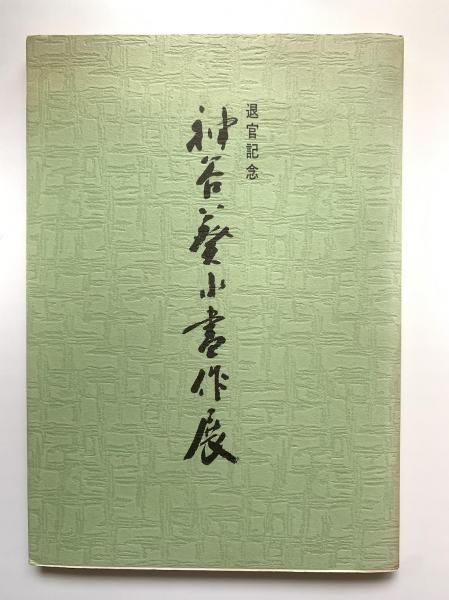 退官記念
神谷葵水書作展